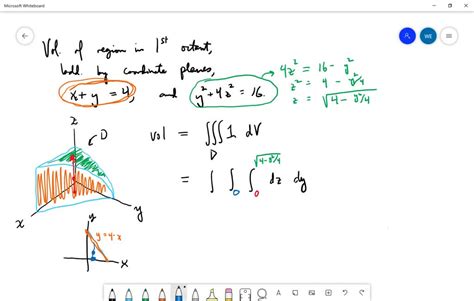 Microsoft Whiteboard
WE
Vol. of region in 1st octant,
bdd. by coordinate planes,
x + y = 4, and y² + 4z² = 16.
4z² = 16 - y²
z² = 4 - y²/4
z = √(4 - y²/4)
z
D
x
y
vol = ∭ 1 dV
D
= ∫ ∫₀ ∫₀^√(4-y²/4) dz dy
y
y = 4-x
x